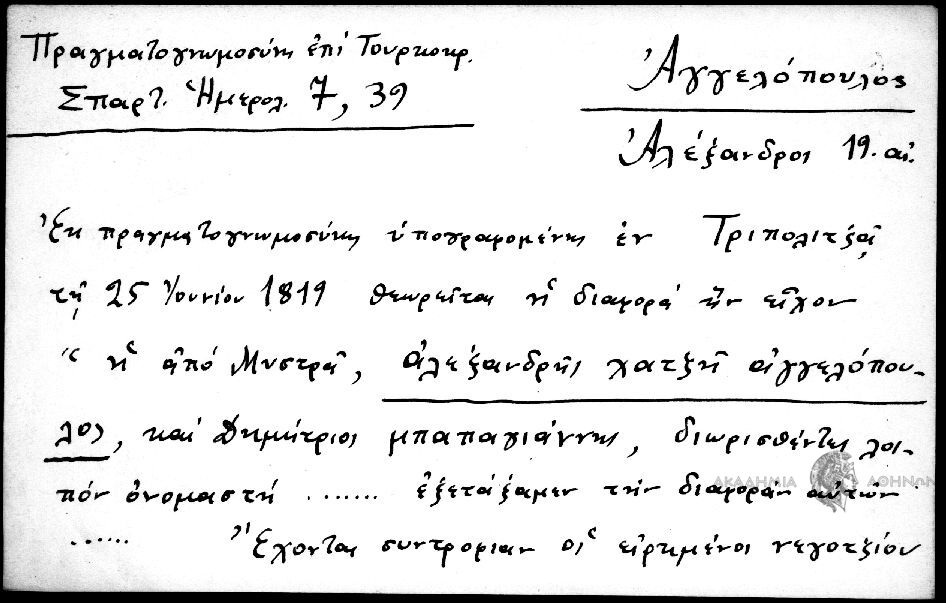 Πραγματογνωμοσύνης ἐπί Τουρκοκρ.
Σπαρτ. Ἡμερολ. 7, 39
Ἀγγελόπουλος
Ἀλέξανδρος 19. αἰ.
Ἐκ πραγματογνωμοσύνης ὑπογραφομένης ἐν Τριπολιτζᾷ
τῇ 25 Ἰουνίου 1819 θεωρεῖται ἡ διαφορά ἥν εἶχον
“ ἡ ἀπό Μυστρᾶ, ἀλεξανδρῆς χατζῆ ἀγγελόπου-
λος, καί Δημήτριος μπαπαγιάννης, διωρισθέντες λοι-
πόν ὀνομαστή ....... ἐξετάξαμεν τήν διαφοράν αὐτῶν
ΑΚΑΔΗΜΙΑ ΑΘΗΝΩΝ
...... Ἔχοντας συντροφίαν οἱ εἰρημένοι νεγοτζίου